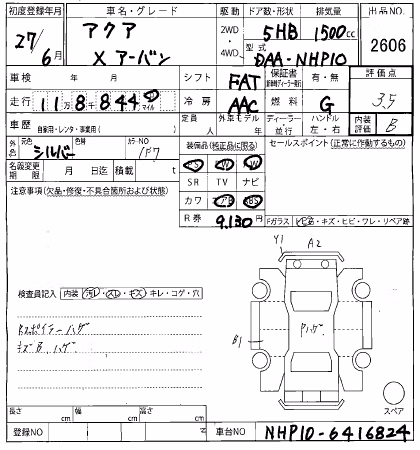 初度登録年月 車名・グレード 駆動 ドア数・形状 排気量 出品NO.
27/6月 アクア 2WD・4WD 5HB 1500cc 2606
X アーバン 型式 DAA-NHP10
車検 年 月 シフト FAT 保証書 有・無 評価点
走行 11万8千844 km マイル 冷房 AAC 燃料 G 3.5
車歴 自家用・レンタ・事業用( ) 定員 人 外車モデル 年 ディーラー・並行 ハンドル 左・右 内装評価 B
外色 元色 シルバー 色替 カラーNO 1F7 装備品(純正品に限る) セールスポイント(正常に作動するもの)
名義変更期限 月 日迄 積載 t PS PW
注意事項(欠品・修復・不具合箇所および状態) SR TV ナビ
カワ アAB ABS
R券 9,130円 Fガラス キズ・ヒビ・ワレ・リペア跡
Y1 A2
検査員記入 内装 汚レ・スレ・キズ・キレ・コゲ・穴
Rスポイラーハゲ
キズB、ハゲ
B1
ハゲ
スペア
長さ cm 幅 cm 高さ cm
登録NO N 車台NO NHP10-6416824